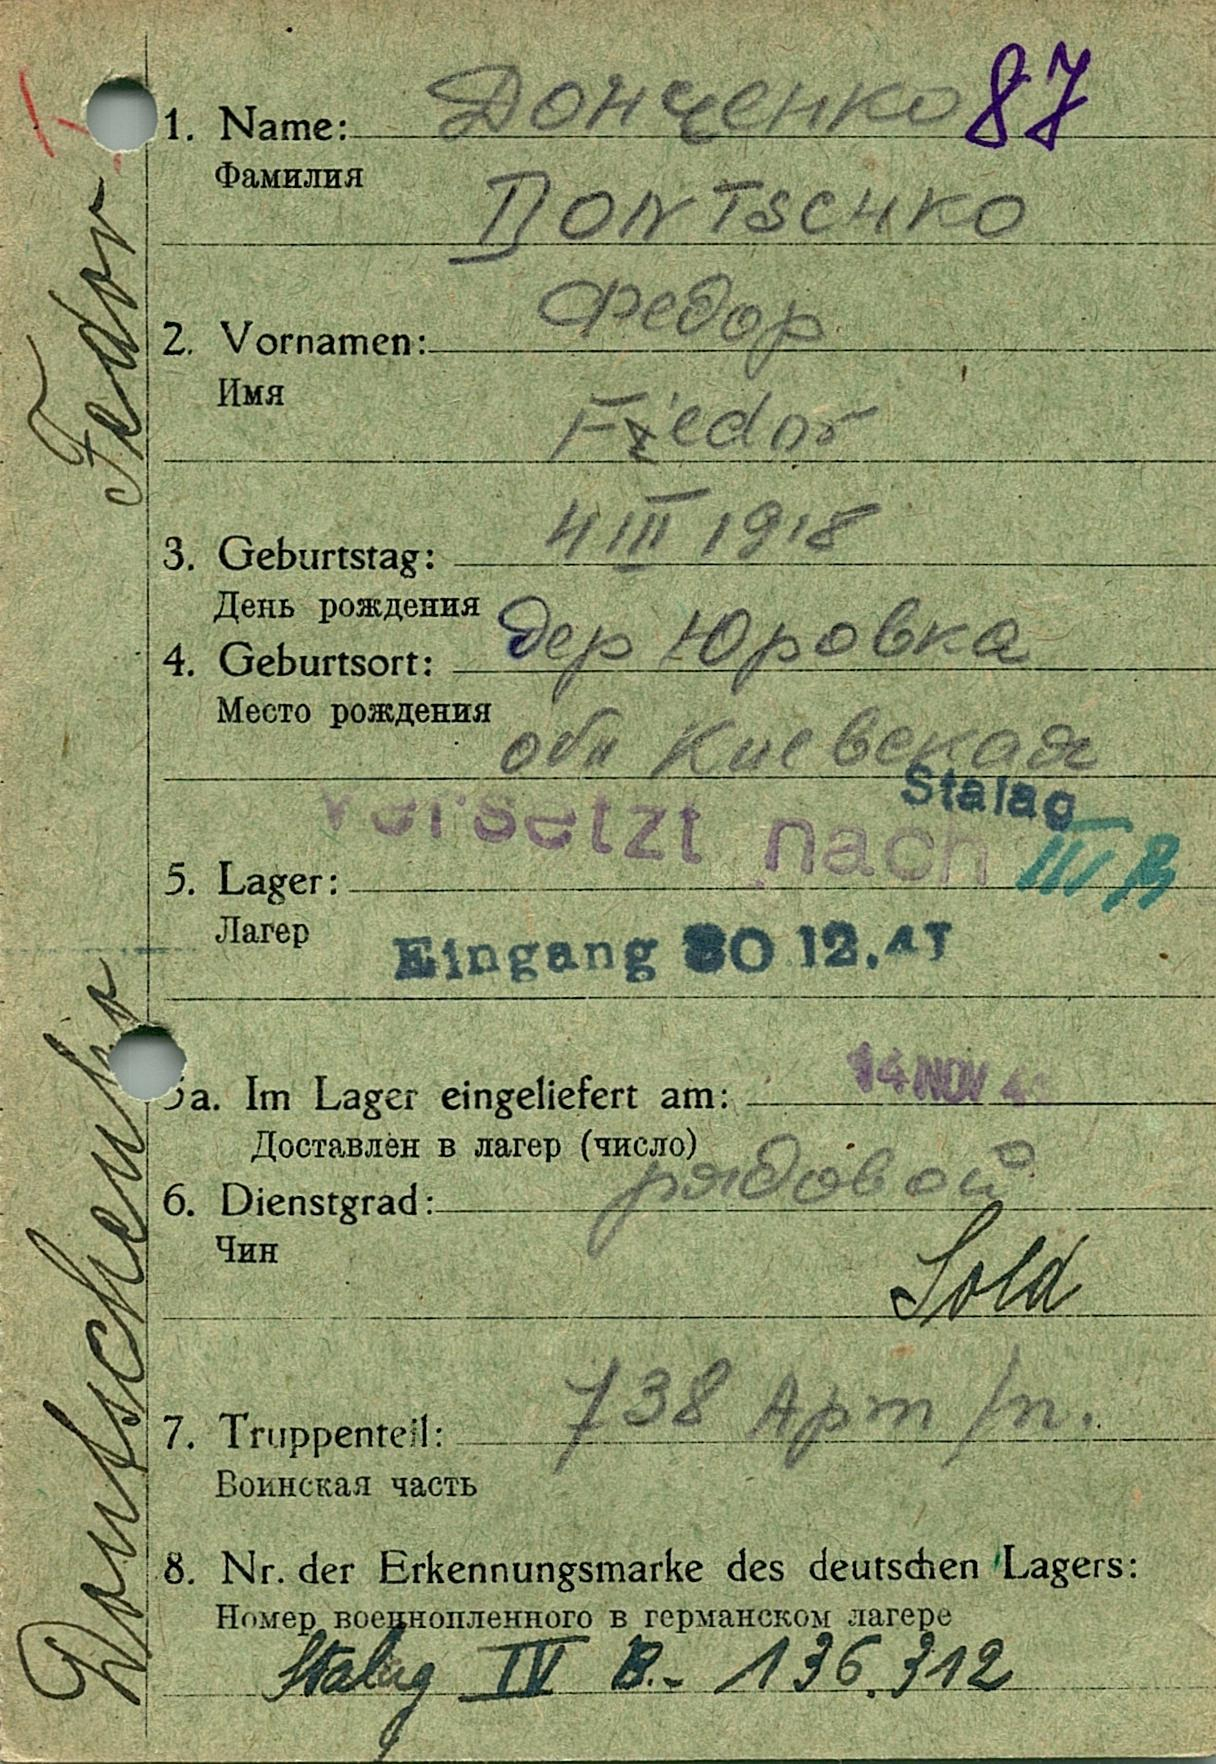 1. Name: Донченко 87
Фамилия
Dontschko
Федор
2. Vornamen:
Имя
Fiedor
4 III 1918
3. Geburtstag:
День рождения
4. Geburtsort: дер Юровка
Место рождения
обл Киевская
versetzt nach Stalag
5. Lager:
Лагер
Eingang 30 12.41
5a. Im Lager eingeliefert am: 14 NOV
Доставлен в лагер (число)
6. Dienstgrad: рядовой
Чин
Sold
7. Truppenteil: 738 Арт /п.
Воинская часть
8. Nr. der Erkennungsmarke des deutschen Lagers:
Номер военнопленного в германском лагере
Stalag IV B.- 136.312
Dontschenko Fedor